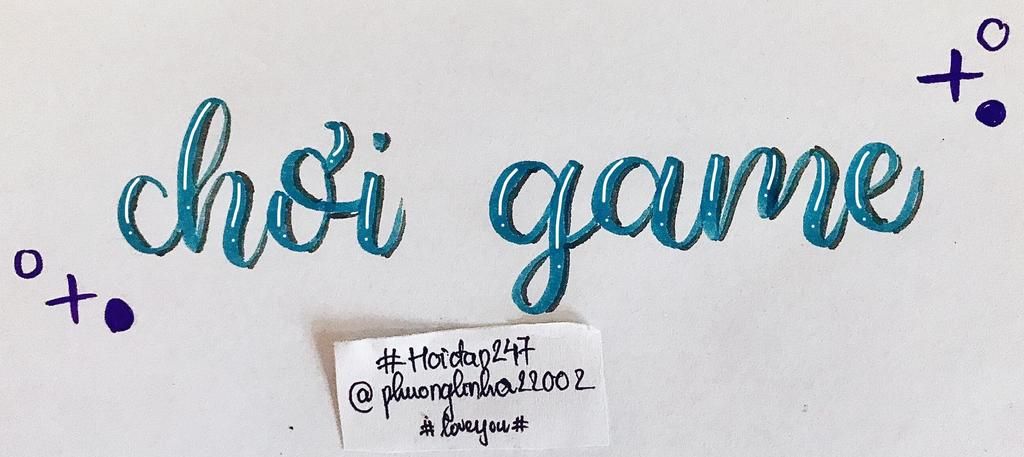 chơi game
#Hoidap247
@phuonglinha22002
#loveyou#